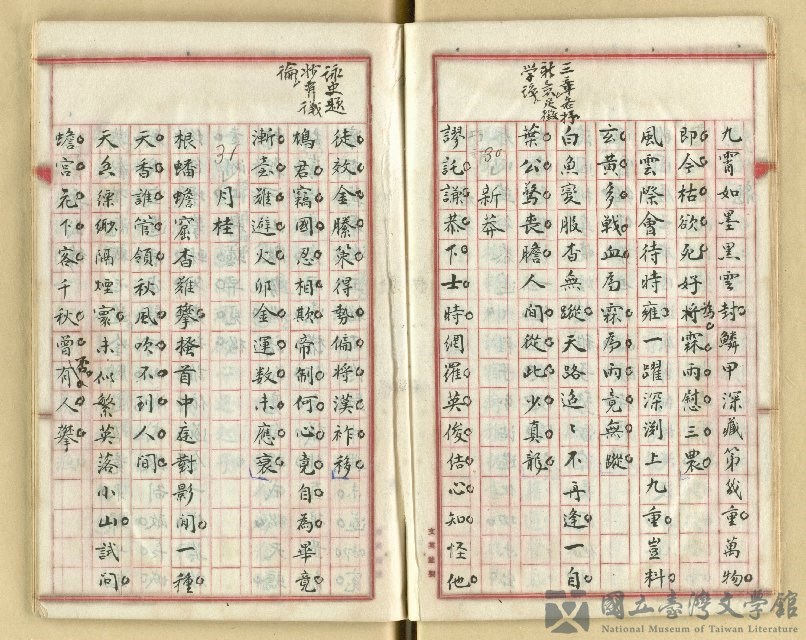 三章若抒
學後
九霄如墨黑雲封鱗甲深藏第幾重萬物
即今枯欲死好將霖雨慰三農
為
風雲際會待時雍一躍深淵上九重豈料
玄黃多戰血為霖為雨竟無蹤
白魚變服杳無蹤天路迢〻不再逢一自
葉公驚喪膽人間從此少真龍
30 新莽
謬託謙恭下士時網羅英俊佶心知怪他
詠史題
徒效金縢策得勢偏將漢祚移
鳩君竊國忍相欺帝制何心竟自為畢竟
漸臺難避火卯金運数未應衰
31 月桂
根蟠蟾窟杳難攀搔首中庭對影閒一種
天香誰管領秋風吹不到人間
天兵縹緲隔煙寰未似繁英落小山試問
蟾宮花下客千秋曾有人攀
否
國立臺灣文學館
National Museum of Taiwan Literature